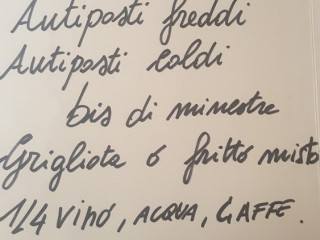 Antipasti freddi
Antipasti caldi
bis di minestre
Grigliata o fritto misto
1/4 vino, ACQUA, CAFFE.